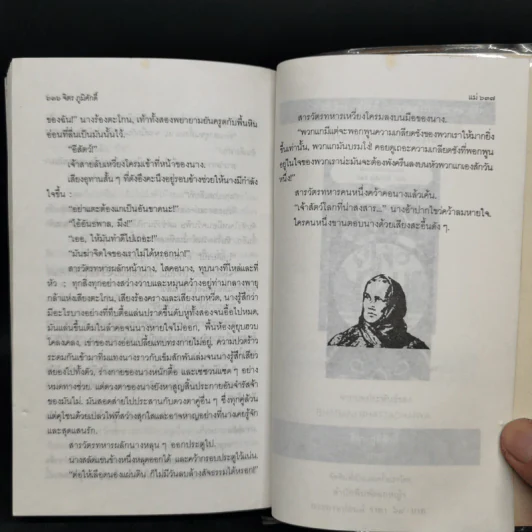 ๖๓๖ จิตร ภูมิศักดิ์
ของฉัน!" นางร้องตะโกน, เท้าทั้งสองพยายามยันครูดกับพื้นหิน
อ่อนที่ลื่นเป็นมันนั้นไว้.
"อีสัตว์!"
เจ้าสายลับเหวี่ยงโครมเข้าที่หน้าของนาง.
เสียงอุทานสั้น ๆ ที่ดังอึงคะนึงอยู่รอบข้างช่วยให้นางมีกำลัง
ใจขึ้น :
"อย่าแตะต้องแกเป็นอันขาดนะ!"
"ไอ้อันธพาล, มึง!"
"เออ, ให้มันทำดีไปเถอะ!"
"มันฆ่าจิตใจของเราไม่ได้หรอกน่า!"
สารวัตรทหารผลักหน้านาง, ไสคอนาง, ทุบนางที่ไหล่และที่
หัว ; ทุกสิ่งทุกอย่างสว่างวาบและหมุนคว้างอยู่ท่ามกลางพายุ
กล้าแห่งเสียงตะโกน, เสียงร้องครางและเสียงนกหวีด, นางรู้สึกว่า
มีอะไรบางอย่างที่ทึบตื้อแล่นปราดขึ้นดับหูทั้งสองจนอื้อไปหมด,
มันแล่นขึ้นเต็มในลำคอจนนางหายใจไม่ออก, พื้นห้องดูยุบฮวบ
โคลงเคลง, เข่าของนางอ่อนเปลี้ยแทบทรงกายไม่อยู่, ความปวดร้าว
ระดมกันเข้ามาทิ่มแทงนางราวกับเข็มสักพันเล่มจนนางรู้สึกเสียว
สยองไปทั้งตัว, ร่างกายของนางหนักตื้อ และเซซวนแซด ๆ อย่าง
หมดทางช่วย. แต่ดวงตาของนางยังหาสูญสิ้นประกายอันจำรัสจ้า
ของมันไม่. มันสอดส่ายไปประสานกับดวงตาคู่อื่น ๆ ซึ่งทุกคู่ล้วน
แต่คุโชนด้วยเปลวไฟที่สว่างสุกใสและอาจหาญอย่างที่นางเคยรู้จัก
และสุดแสนรัก.
สารวัตรทหารผลักนางหลุน ๆ ออกประตูไป.
นางสลัดแขนข้างหนึ่งหลุดออกได้ และคว้ากรอบประตูไว้แน่น.
"ต่อให้เลือดนองแผ่นดิน ก็ไม่มีวันลบล้างสัจธรรมได้หรอก!"
แม่ ๖๓๗
สารวัตรทหารเหวี่ยงโครมลงบนมือของนาง.
"พวกแกมีแต่จะพอกพูนความเกลียดชังของพวกเราให้มากยิ่ง
ขึ้นเท่านั้น, พวกแกมันบรมโง่! คอยดูเถอะความเกลียดชังที่พอกพูน
อยู่ในใจของพวกเราน่ะมันจะต้องพังครืนลงบนหัวพวกแกเองสักวัน
หนึ่ง!"
สารวัตรทหารคนหนึ่งคว้าคอนางแล้วเค้น.
"เจ้าสัตว์โลกที่น่าสงสาร..." นางอ้าปากไขว่คว้าลมหายใจ.
ใครคนหนึ่งขานตอบนางด้วยเสียงสะอื้นดัง ๆ.